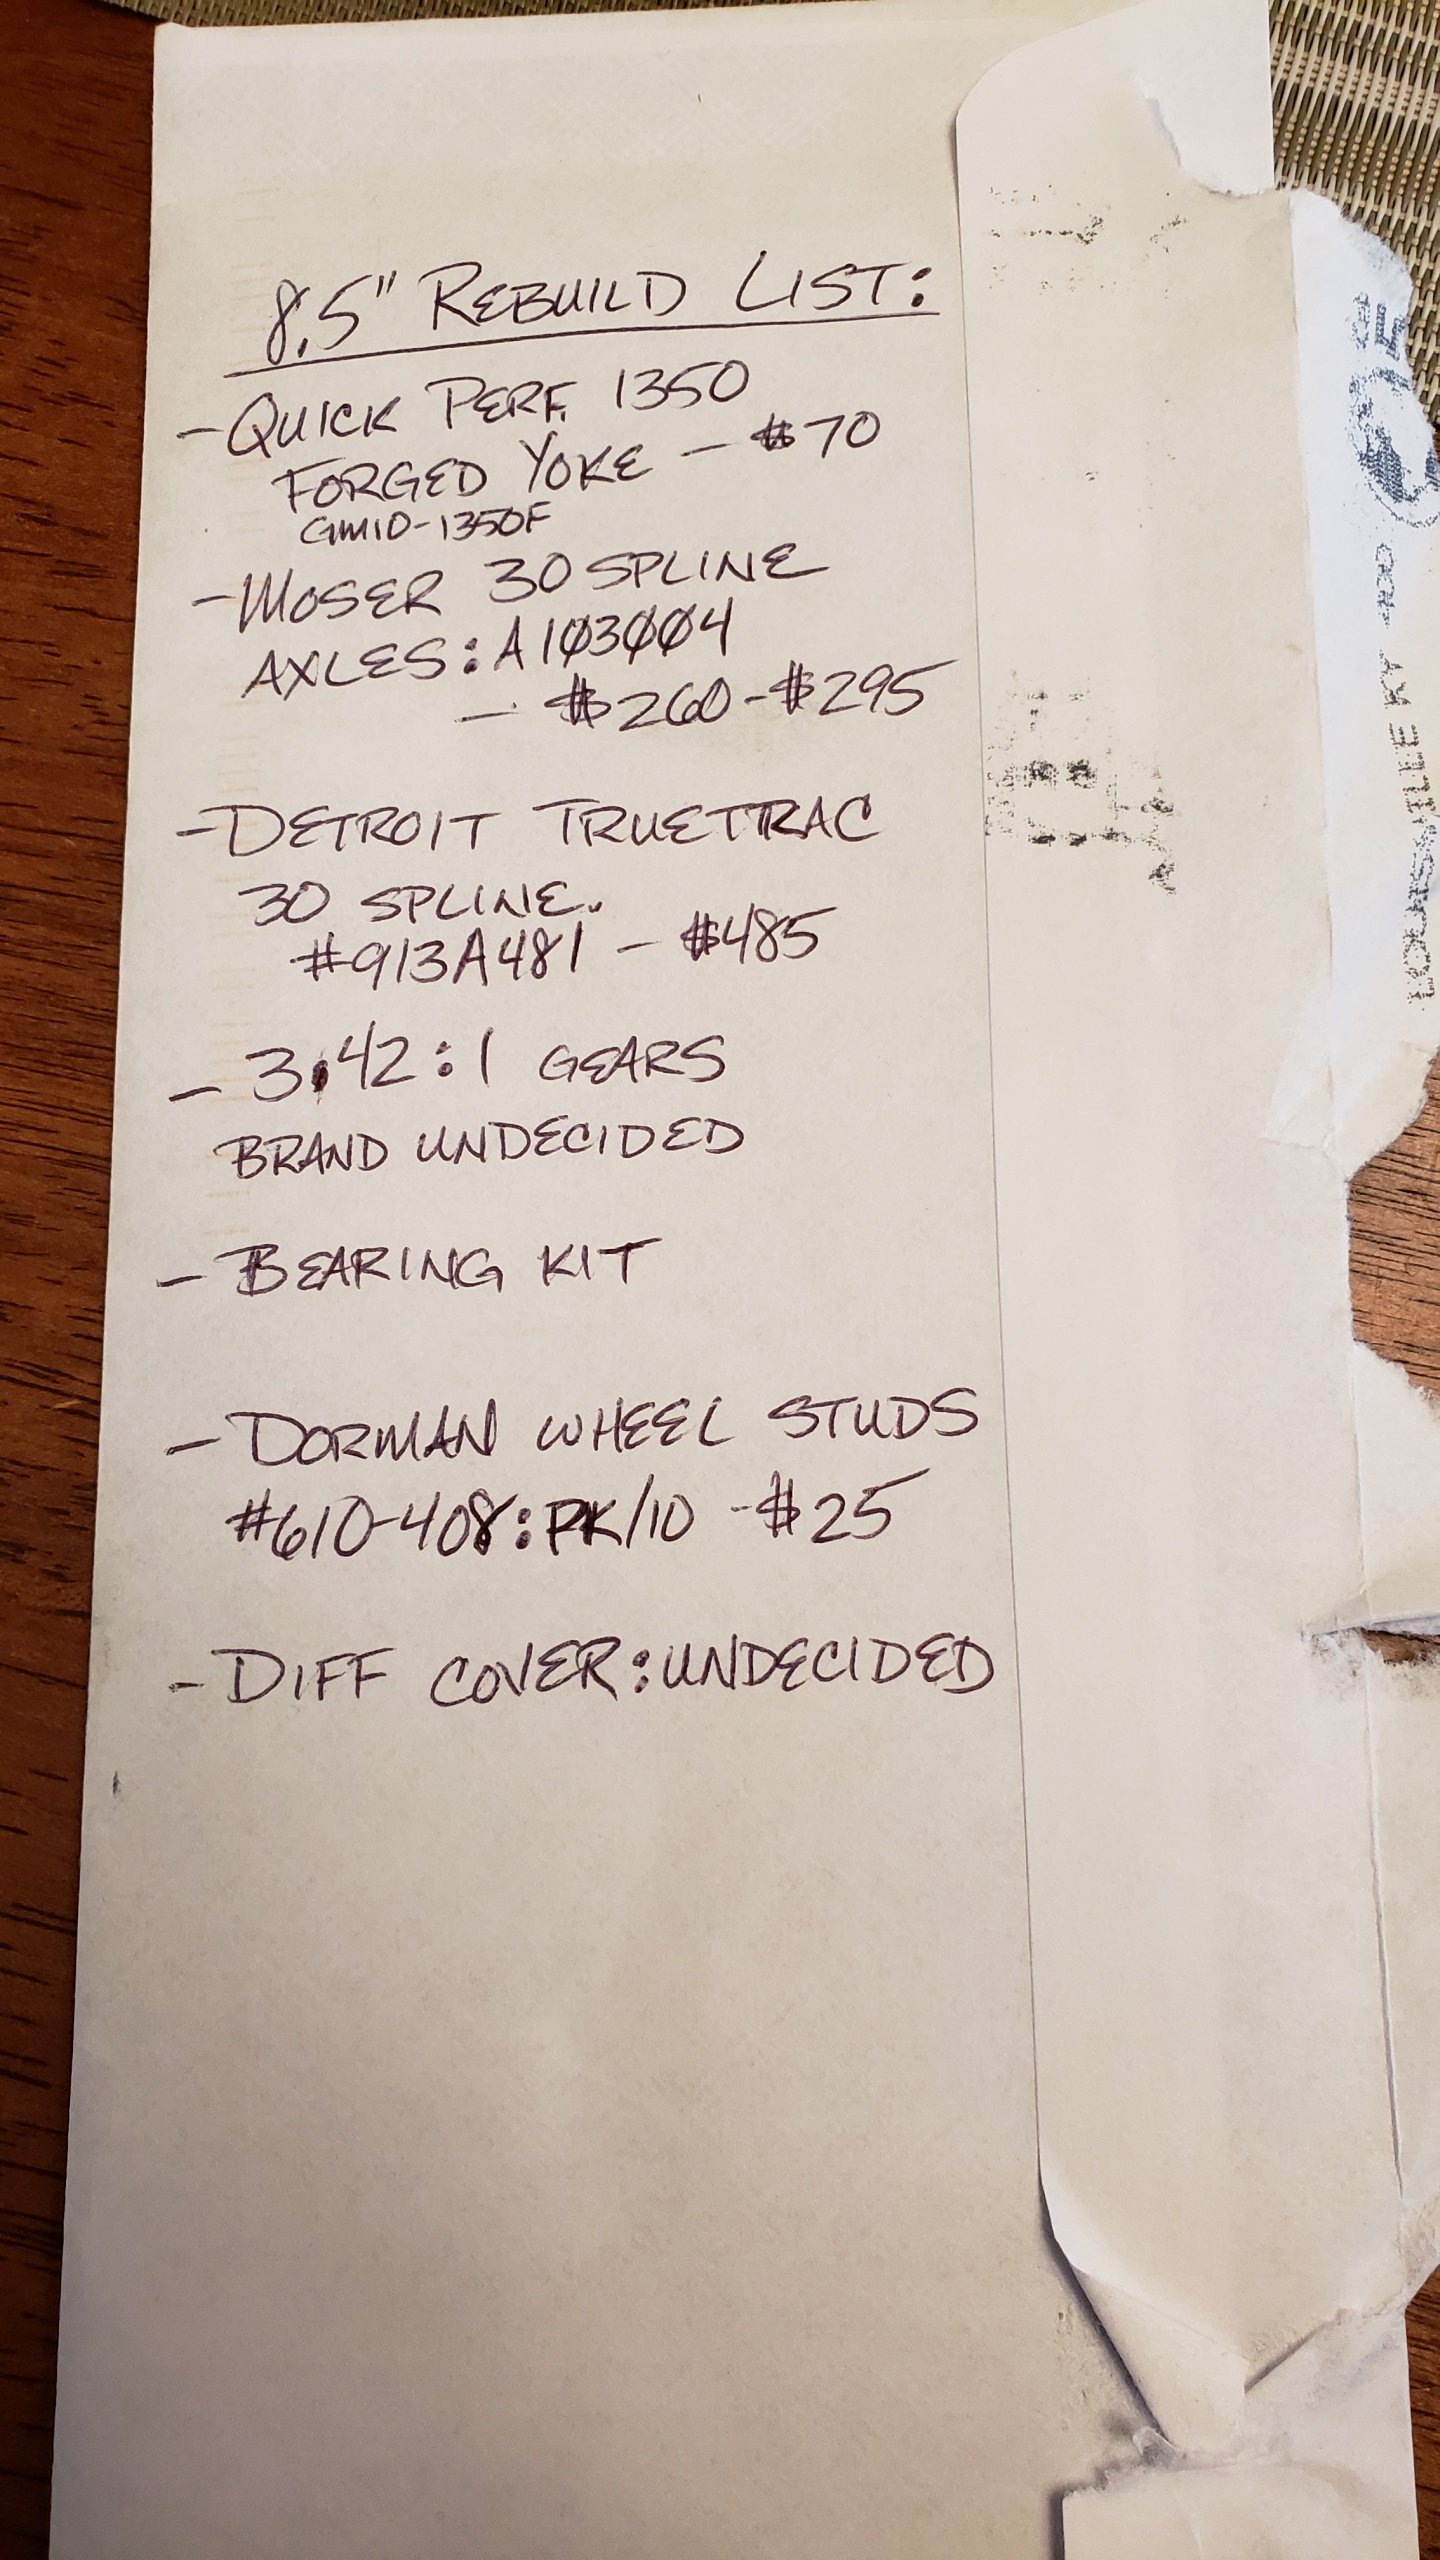 8.5" REBUILD LIST:
- QUICK PERF. 1350
FORGED YOKE - $70
GM10-1350F
- MOSER 30 SPLINE
AXLES: A103004
- $260-$295
- DETROIT TRUETRAC
30 SPLINE.
#913A481 - $485
- 3.42:1 GEARS
BRAND UNDECIDED
- BEARING KIT
- DORMAN WHEEL STUDS
#610-408: PK/10 - $25
- DIFF COVER: UNDECIDED
LOUISVILLE KY 400